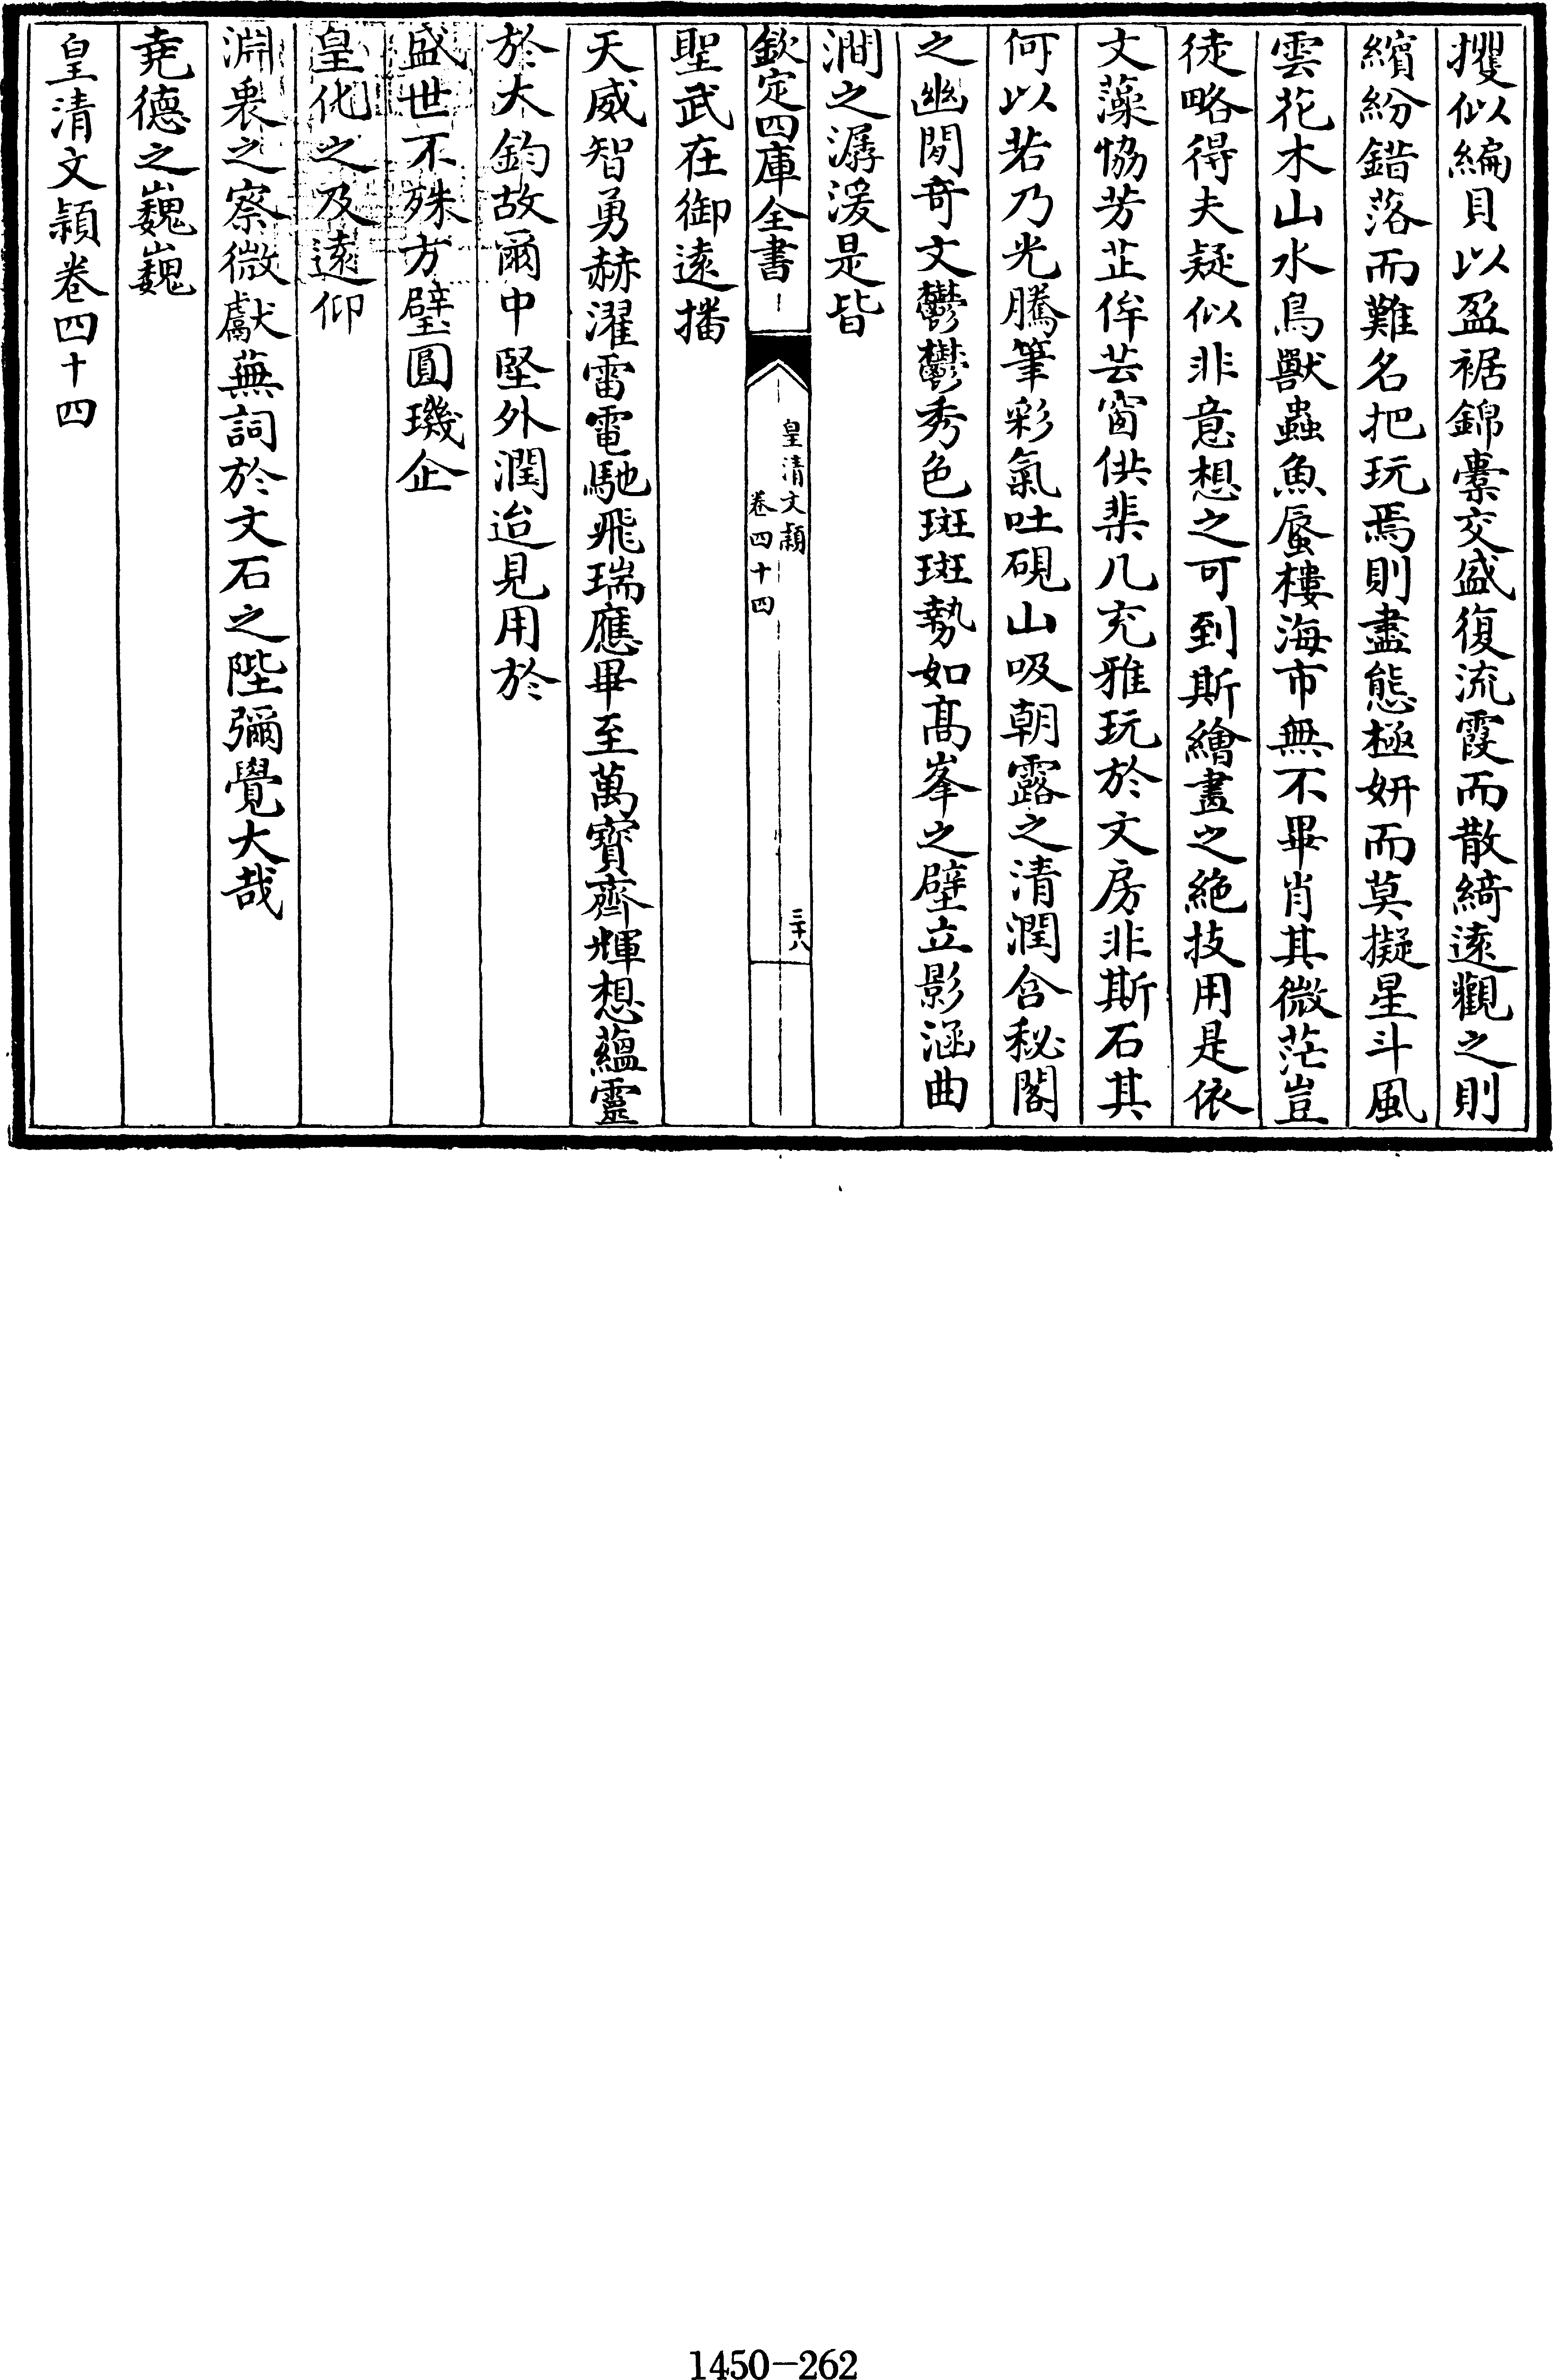 攫似編貝以盈裾錦橐交盛復流霞而散綺逺觀之則
繽紛錯落而難名把玩焉則盡態極妍而莫擬星斗風
雲花木山水鳥獸蟲魚蜃樓海市無不畢肖其微茫豈
徒略得夫疑似非意想之可到斯繪畫之絶技用是依
文藻恊芳芷侔芸窗供棐几充雅玩於文房非斯石其
何以若乃光騰筆彩氣吐硯山吸朝露之清潤含秘閣
之幽閒奇文鬱鬱秀色斑斑勢如髙峯之壁立影涵曲
澗之潺湲是皆
欽定四庫全書
皇清文穎
卷四十四
三十八
聖武在御逺播
天威智勇赫濯雷電馳飛瑞應畢至萬寳齊輝想藴靈
於大鈞故爾中堅外潤迨見用於
盛世不殊方璧圓璣企
皇化之及逺仰
淵衷之察微獻蕪詞於文石之陛彌覺大哉
堯德之巍巍
皇清文穎卷四十四
1450-262